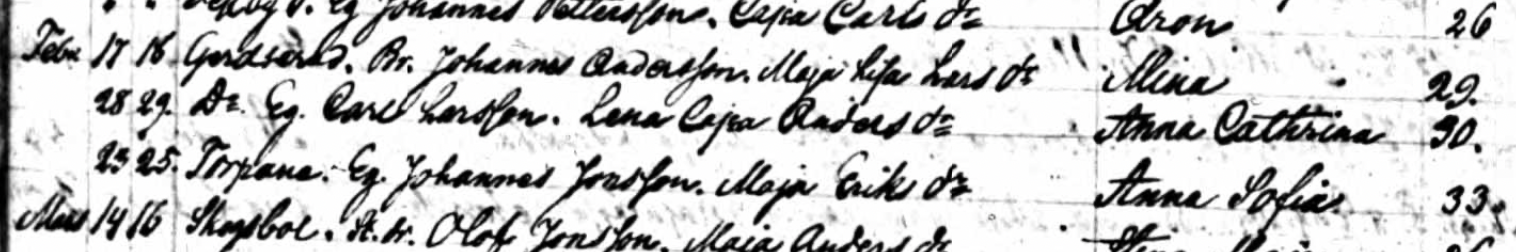 Eg Johannes Pettersson. Cajsa Carls dr Aron 26
Febr 17 18 Gerdserud. Br. Johannes Andersson. Maja Lisa Lars dr Mina 29.
28 29. Do. Eg. Carl Larsson. Lena Cajsa Anders dr Anna Cathrina 30.
23 25. Torpane. Eg. Johannes Jonsson. Maja Eriks dr Anna Sofia 33.
Mars 14 16 Skogsbol. Olof Jonsson. Maja Anders dr Stina Maja